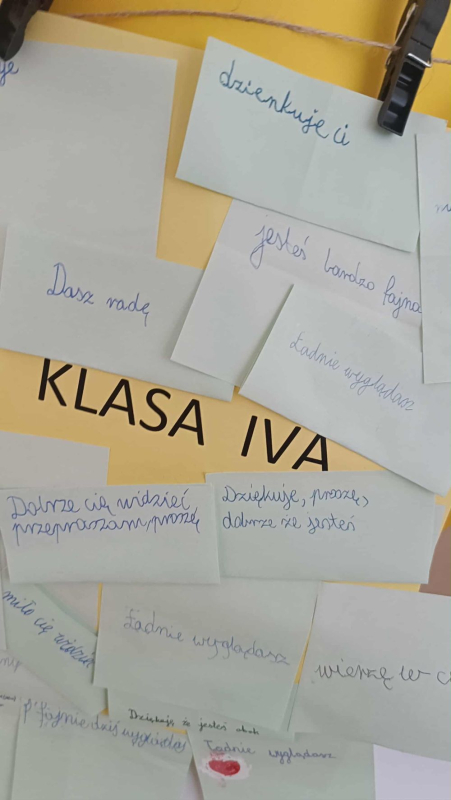 je
dzienkuję ci
jesteś bardzo fajna
Dasz radę
Ładnie wyglądasz
KLASA IVA
Dobrze cię widzieć
przepraszam, proszę
Dziękuje, proszę,
dobrze że jesteś
miło cię widzieć
Ładnie wyglądasz
wierzę w
fajnie dziś wyglądasz
Dziękuję że jesteś obok
Ładnie wyglądasz